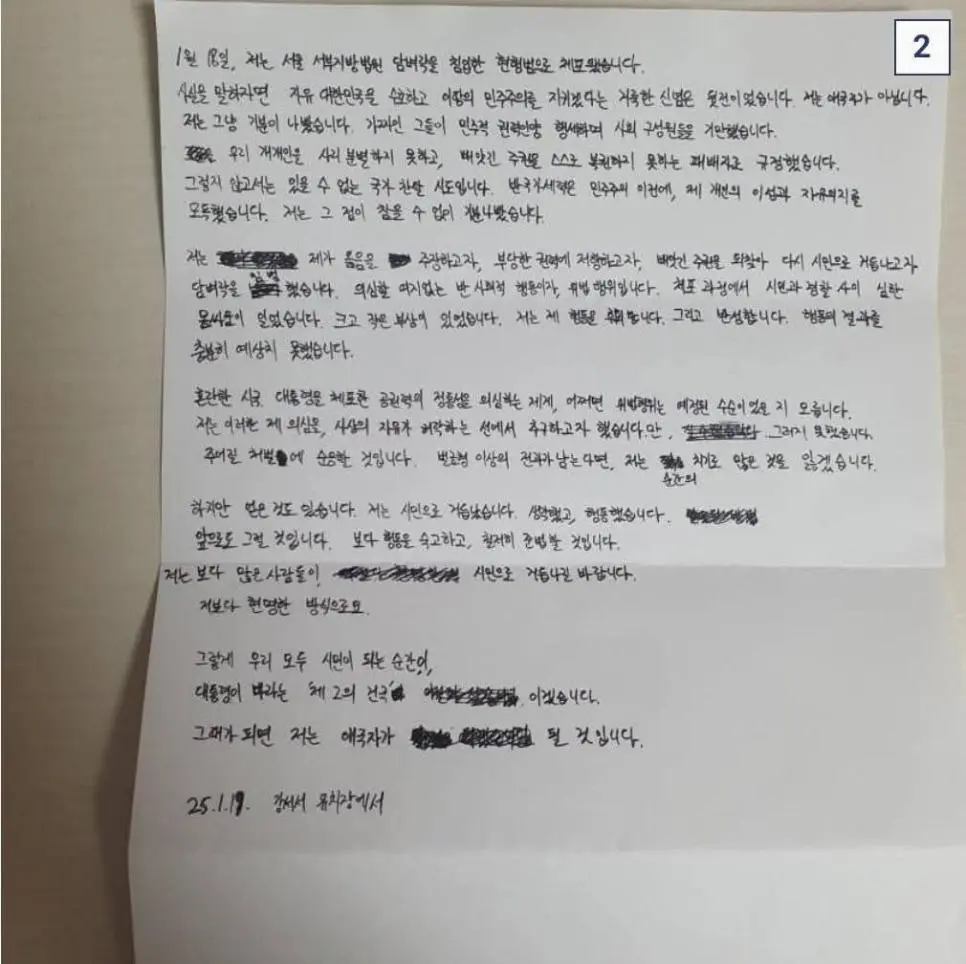 2
1월 18일, 저는 서울 서부지방법원 담벼락을 침입한 현행범으로 체포됐습니다.
사실을 말하자면 자유 대한민국을 수호하고 이땅의 민주주의를 지키겠다는 거룩한 신념은 뒷전이었습니다. 저는 애국자가 아닙니다.
저는 그냥 기분이 나빴습니다. 가짜인 그들이 민주적 권력인양 행세하며 사회 구성원들을 기만했습니다.
우리 개개인을 사리 분별하지 못하고, 빼앗긴 주권을 스스로 복권하지 못하는 패배자로 규정했습니다.
그렇지 않고서는 있을 수 없는 국가 찬탈 시도입니다. 반국가세력은 민주주의 이전에, 제 개인의 이성과 자유의지를
모독했습니다. 저는 그 점이 참을 수 없이 기분나빴습니다.
저는 제가 옳음을 주장하고자, 부당한 권력에 저항하고자, 빼앗긴 주권을 되찾아 다시 시민으로 거듭나고자
담벼락을 침범 했습니다. 의심할 여지없는 반 사회적 행동이자, 위법 행위입니다. 체포 과정에서 시민과 경찰 사이 심한
몸싸움이 일었습니다. 크고 작은 부상이 있었습니다. 저는 제 행동을 후회합니다. 그리고 반성합니다. 행동의 결과를
충분히 예상치 못했습니다.
혼란한 시국 대통령을 체포한 공권력의 정통성을 의심하는 제게, 어쩌면 위법행위는 예정된 수순이었을 지 모릅니다.
저는 이러한 제 의심을, 사상의 자유가 허락하는 선에서 추구하고자 했습니다만, 그러지 못했습니다.
주어질 처벌에 순응할 것입니다. 벌금형 이상의 전과가 남는다면, 저는 순간의 치기로 많은 것을 잃겠습니다.
하지만 얻은것도 있습니다. 저는 시민으로 거듭났습니다. 생각했고, 행동했습니다.
앞으로도 그럴 것입니다. 보다 행동을 숙고하고, 철저히 준법할 것입니다.
저는 보다 많은 사람들이, 시민으로 거듭나길 바랍니다.
저보다 현명한 방식으로요.
그렇게 우리 모두 시민이 되는 순간이,
대통령이 바라는 '제 2의 건국' 이겠습니다.
그때가 되면 저는 애국자가 될 것입니다.
25.1.19. 강서서 유치장에서